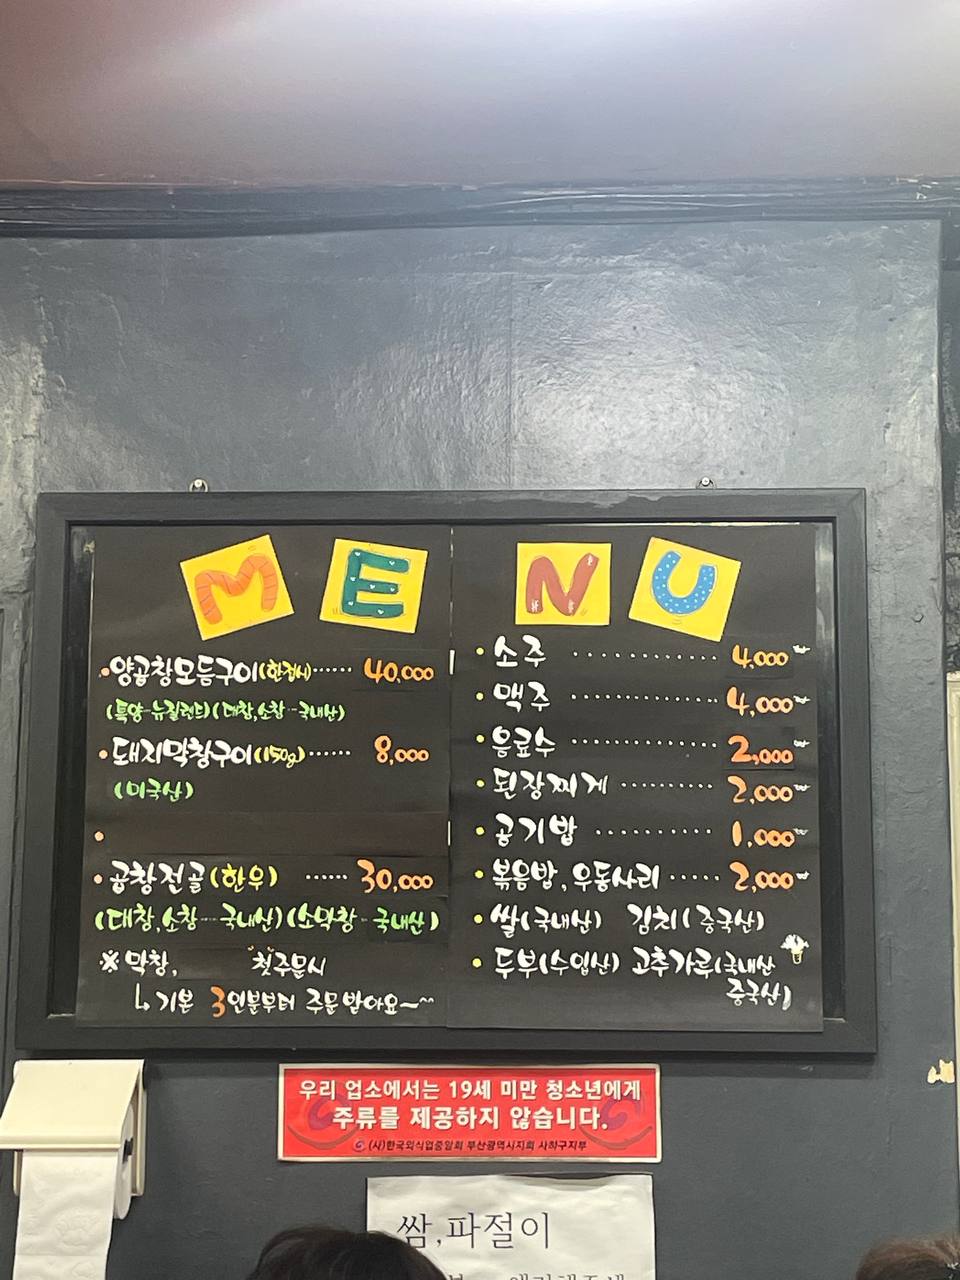 MENU
양곱창모듬구이(한접시)······ 40,000
(특양-뉴질랜드)(대창,소창-국내산)
돼지막창구이(150g)······ 8,000
(미국산)
곱창전골(한우) ······ 30,000
(대창,소창-국내산)(소막창-국내산)
※막창, 첫주문시
↳기본 3인분부터 주문받아요~~
소주 ············ 4,000
맥주 ············ 4,000
음료수 ············ 2,000
된장찌게 ········· 2,000
공기밥 ·········· 1,000
볶음밥,우동사리 ····· 2,000
쌀(국내산) 김치(중국산)
두부(수입산) 고추가루(국내산
중국산)
우리 업소에서는 19세 미만 청소년에게
주류를 제공하지 않습니다.
(사)한국외식업중앙회 부산광역시지회 사하구지부
쌈,파절이